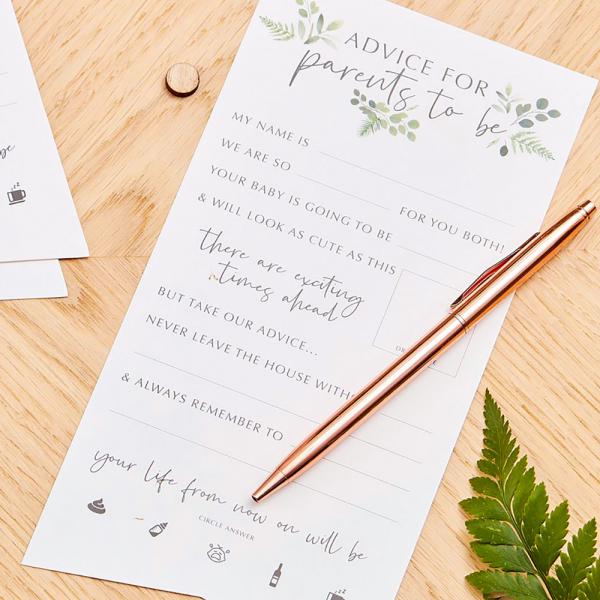 ADVICE FOR
parents to be
MY NAME IS
WE ARE SO
FOR YOU BOTH!
YOUR BABY IS GOING TO BE
& WILL LOOK AS CUTE AS THIS
there are exciting
times ahead
BUT TAKE OUR ADVICE...
NEVER LEAVE THE HOUSE WITH
& ALWAYS REMEMBER TO
your life from now on will be
CIRCLE ANSWER